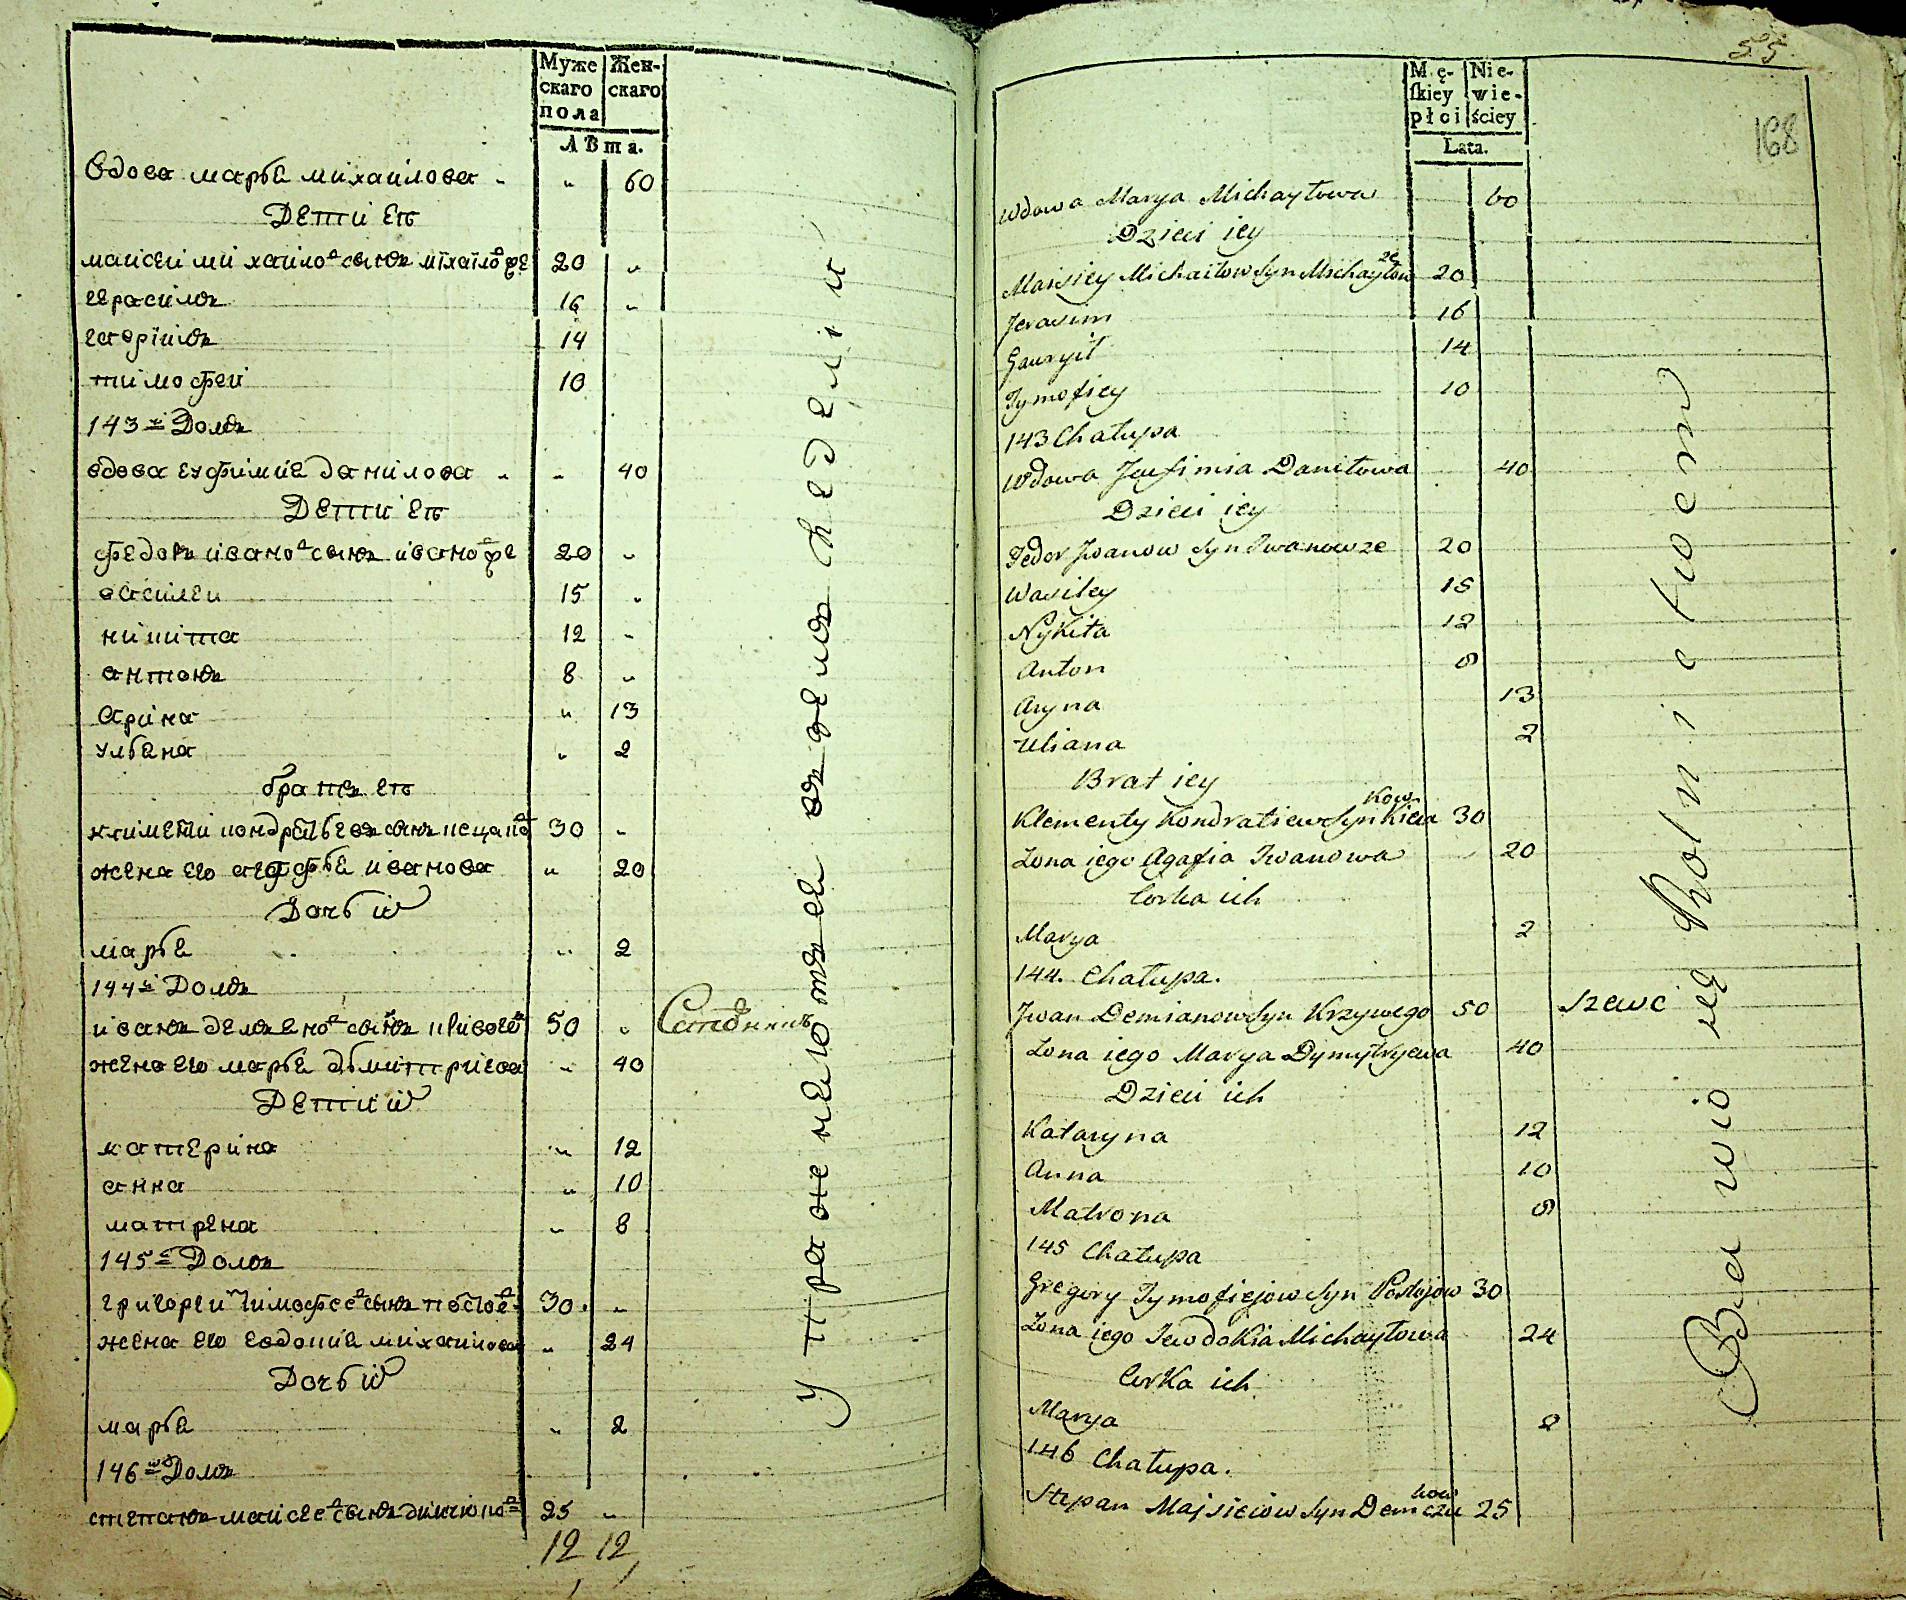 Муже
скаго
пола
Жен-
скаго
Лѣта.
вдова марья михаилова - " 60
Дети ее
маисеи михаило сынъ михаило же 20 "
герасимъ 16 "
гаврiилъ 14
тимофеи 10
143 й Домъ
вдова еуфимия данилова " " 40
Дети ее
федоръ ивано сынъ ивано же 20 "
василеи 15 "
никита 12 "
антонъ 8 "
арина " 13
ульяна " 2
братъ ее
климетий кондратьевъ сынъ 30 "
жена его агафья иванова " 20
Дочь их
марья " 2
144 й Домъ
иванъ демяно сынъ кривого 50 "
жена его марья дьмитриева " 40
Дети их
катерина " 12
анна " 10
матрена " 8
145 й Домъ
григореи тимофее сынъ 30. "
жена его евдокия михаилова " 24
Дочь их
марья " 2
146 Домъ
степанъ маисее сынъ 25 "
12 12
упражнеютъся въ земъ неделiи
55
168
Mę-
ſkiey
płci
Nie-
wie-
ściey
Lata.
Wdowa Marya Michayłowa 60
Dzieci iey
Maisiey Michaiłow Syn Michayłowze 20
Jerasim 16
Gauryił 14
Tymofiey 10
143 Chałupa
Wdowa Jeufimia Daniłowa 40
Dzieci iey
Fedor Jwanow Syn Jwanowze 20
Wasiley 15
Nykita 12
Anton 8
Aryna 13
Uliana 2
Brat iey
Klementy Kondratiew Syn Kicakow 30
Żona iego Agafia Jwanowa 20
Corka ich
Marya 2
144. Chałupa.
Jwan Demianow Syn Krzywego 50 Szewc
Żona iego Marya Dymytryewa 40
Dzieci ich
Kataryna 12
Anna 10
Matrona 8
145 Chałupa
Gregory Tymofiejow Syn Postojow 30
Żona iego Jewdokia Michayłowa 24
Corka ich
Marya 2
146 Chałupa.
Stepan Majsieiow Syn Demczukow 25
Bawio się Rolnictwem